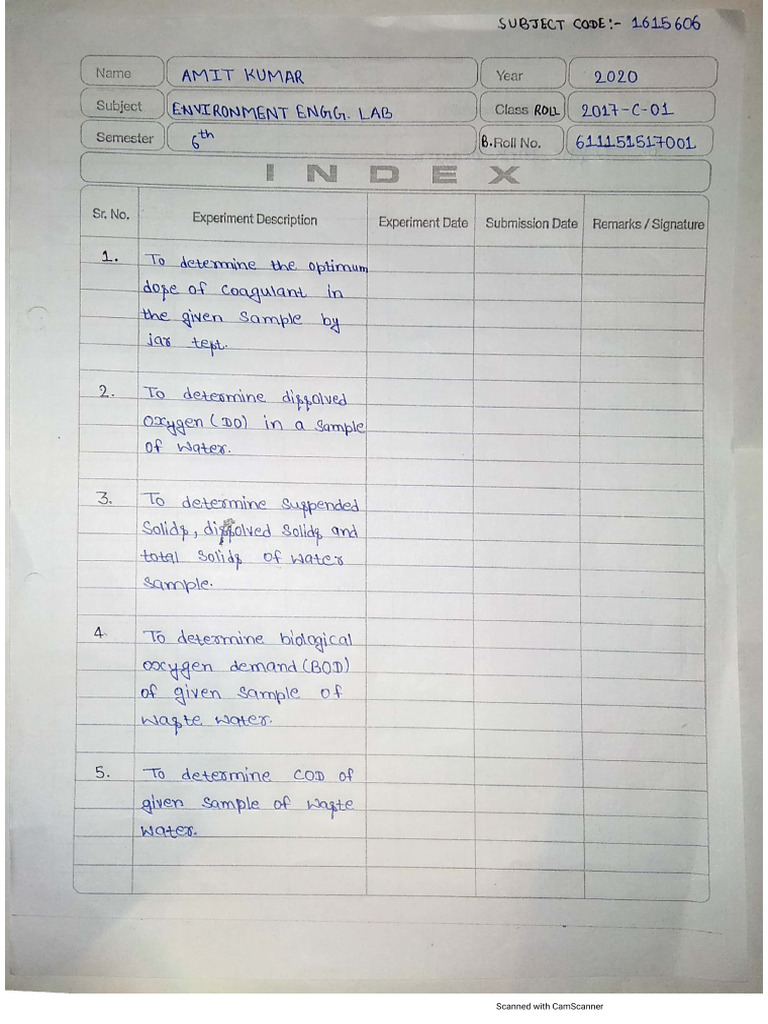 SUBJECT CODE:- 1615606
Name AMIT KUMAR Year 2020
Subject ENVIRONMENT ENGG. LAB Class ROLL 2017-C-01
Semester 6th B. Roll No. 611151517001
INDEX
Sr. No. Experiment Description Experiment Date Submission Date Remarks / Signature
1. To determine the optimum
dose of coagulant in
the given sample by
jar test.
2. To determine dissolved
oxygen (DO) in a sample
of water.
3. To determine suspended
solids, dissolved solids and
total solids of water
sample.
4. To determine biological
oxygen demand (BOD)
of given sample of
waste water.
5. To determine COD of
given sample of waste
water.
Scanned with CamScanner